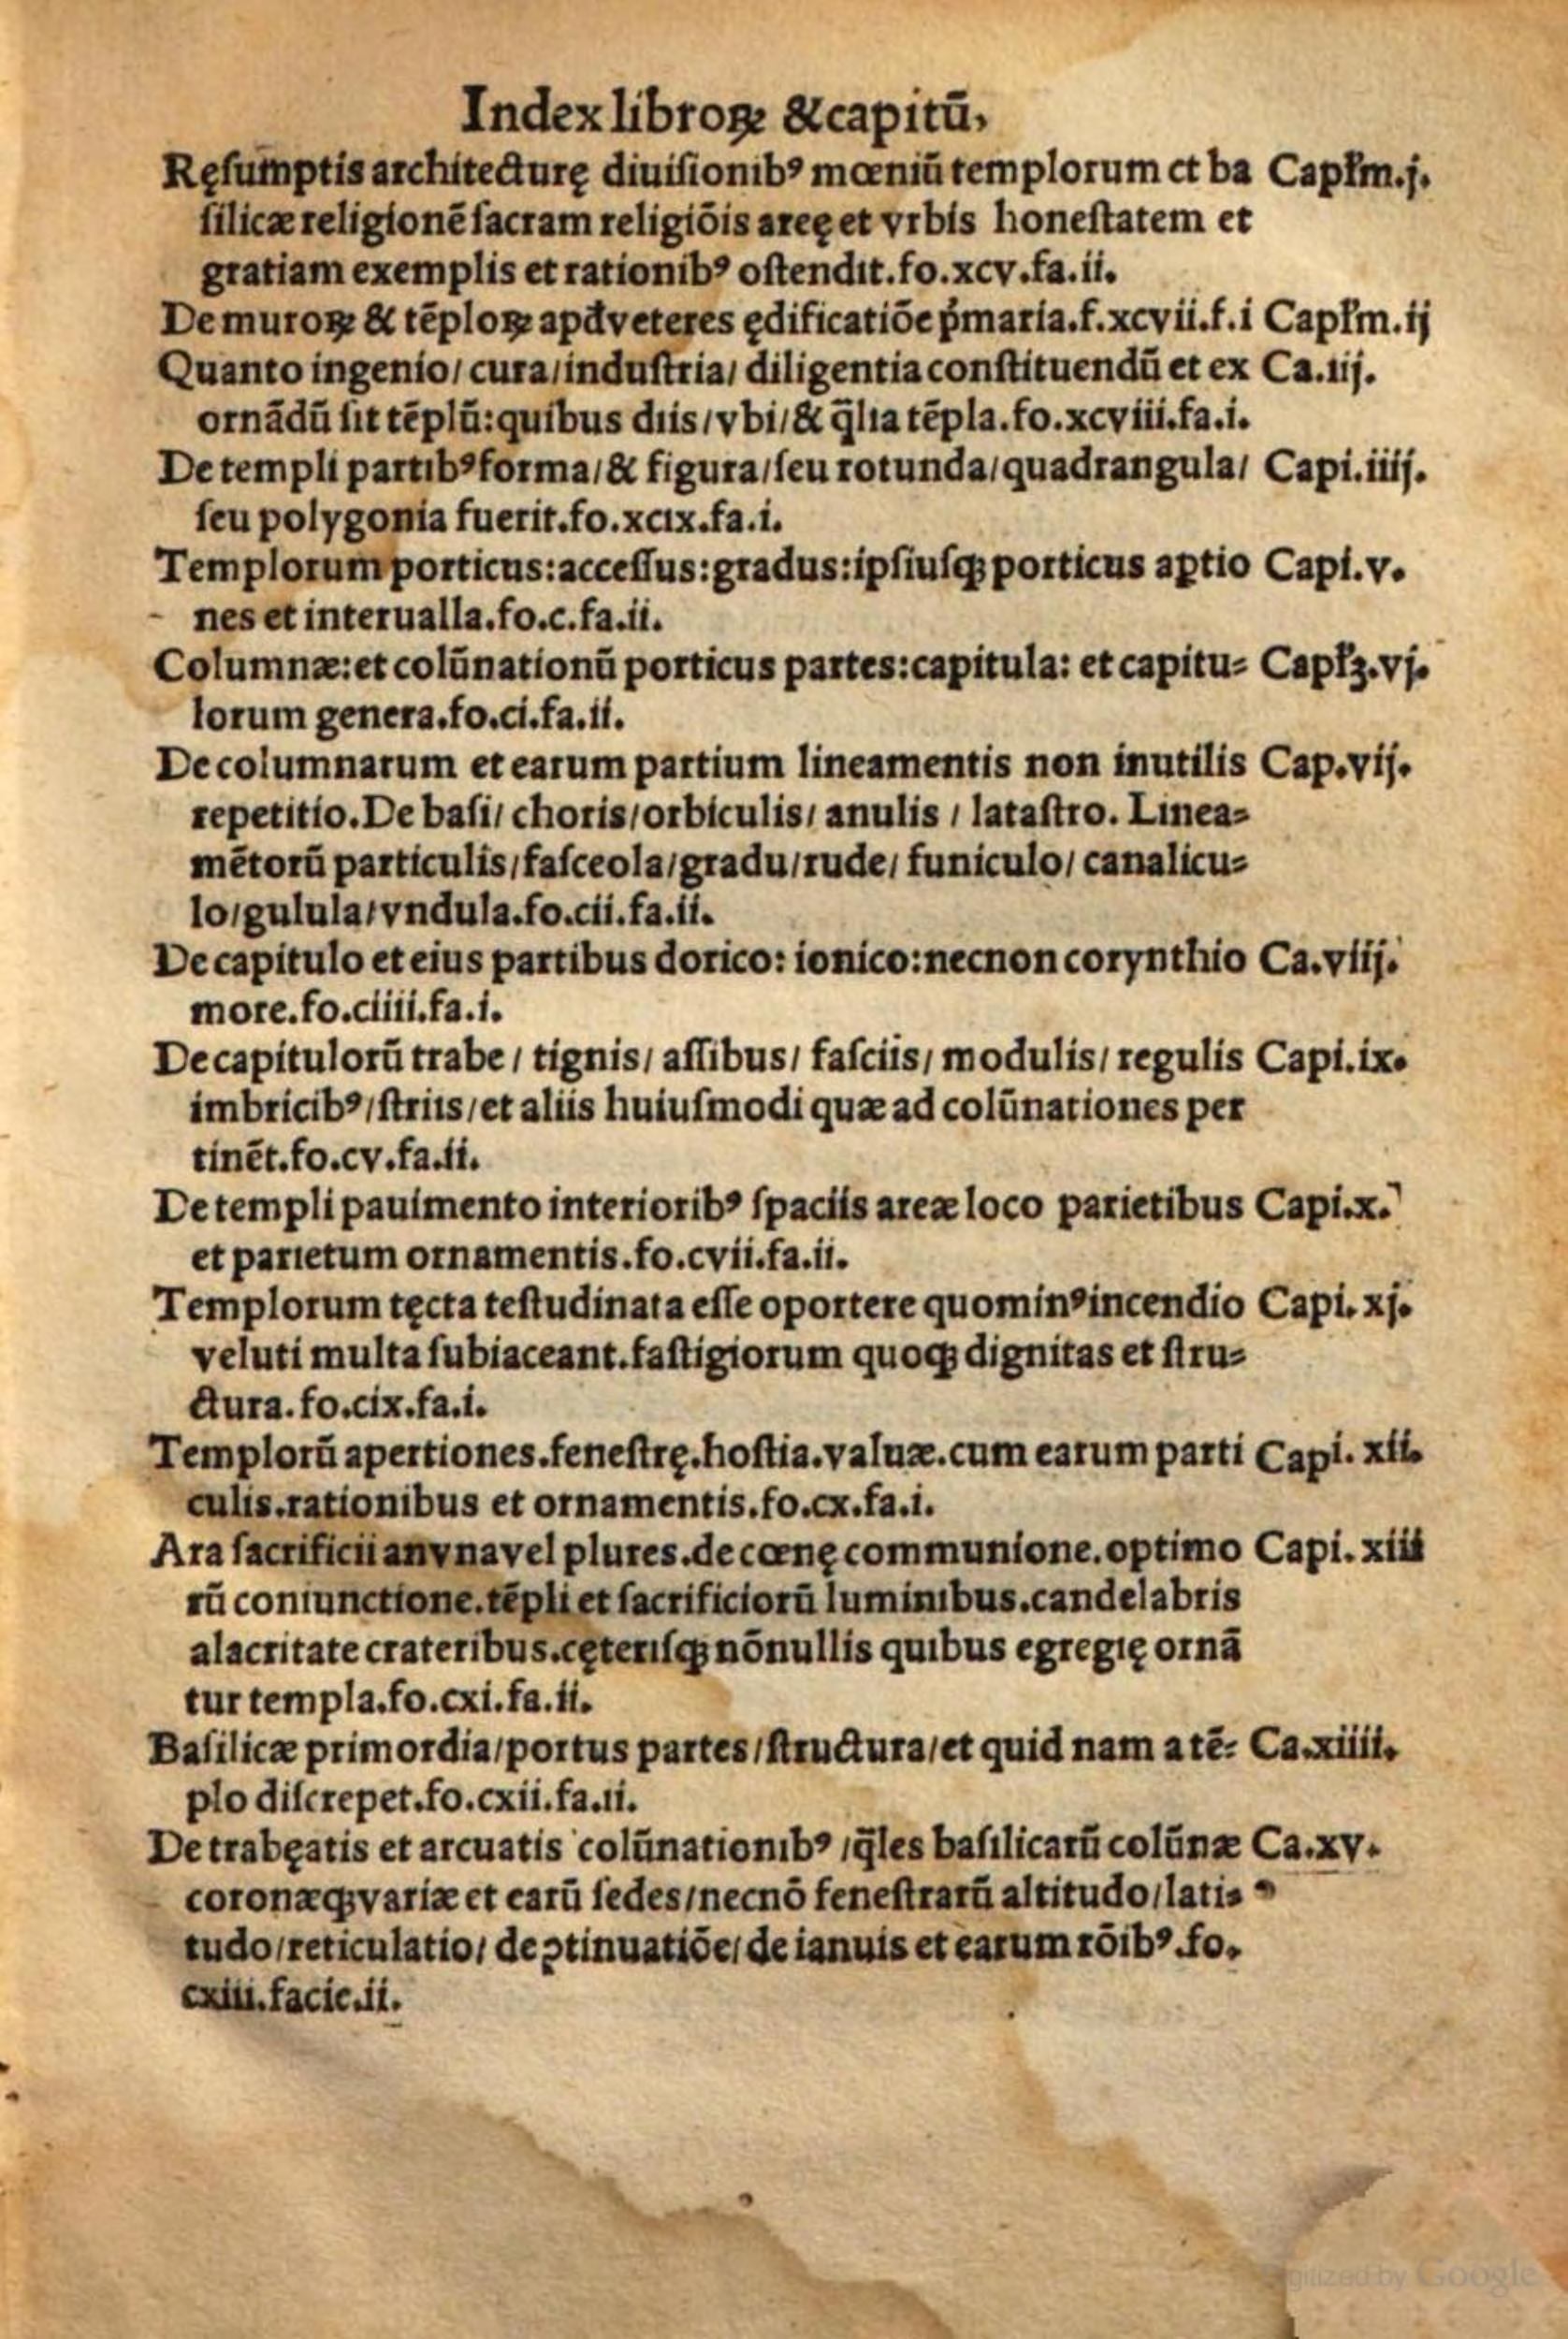 Index libroꝝ &capitū,
Ręſumptis architecturę diuiſionibꝰ mœniū templorum et ba Capľm.j.
ſilicæ religionē ſacram religiōis areę et vrbis honeſtatem et
gratiam exemplis et rationibꝰ oſtendit.fo.xcv.fa.ii.
De muroꝝ & tēploꝝ apđ veteres ędificatiōe p̓maria.f.xcvii.f.i Capľm.ij
Quanto ingenio/ cura/induſtria/ diligentia conſtituendū et ex Ca.iij.
ornādū ſit tēplū:quibus diis/vbi/& q̄lia tēpla.fo.xcviii.fa.i.
De templi partibꝰ forma/& figura/ſeu rotunda/quadrangula/ Capi.iiij.
ſeu polygonia fuerit.fo.xcix.fa.i.
Templorum porticus:acceſſus:gradus:ipſiuſqꝫ porticus aꝑtio Capi.v.
nes et interualla.fo.c.fa.ii.
Columnæ:et colūnationū porticus partes:capitula: et capitu⸗ Capľꝫ.vj.
lorum genera.fo.ci.fa.ii.
De columnarum et earum partium lineamentis non inutilis Cap.vij.
repetitio.De baſi/ choris/orbiculis/ anulis / lataſtro. Linea⸗
mētorū particulis/faſceola/gradu/rude/ funiculo/ canalicu⸗
lo/gulula/vndula.fo.cii.fa.ii.
De capitulo et eius partibus dorico: ionico:necnon corynthio Ca.viij.
more.fo.ciiii.fa.i.
De capitulorū trabe / tignis/ aſſibus/ faſciis/ modulis/ regulis Capi.ix.
imbricibꝰ/ſtriis/et aliis huiuſmodi quæ ad colūnationes per
tinēt.fo.cv.fa.ii.
De templi pauimento interioribꝰ ſpaciis areæ loco parietibus Capi.x.
et parietum ornamentis.fo.cvii.fa.ii.
Templorum tęcta teſtudinata eſſe oportere quominꝰ incendio Capi.xj.
veluti multa ſubiaceant.faſtigiorum quoqꝫ dignitas et ſtru⸗
ctura.fo.cix.fa.i.
Templorū apertiones.feneſtrę.hoſtia.valuæ.cum earum parti Capi. xii.
culis.rationibus et ornamentis.fo.cx.fa.i.
Ara ſacrificii an vna vel plures.de cœnę communione.optimo Capi. xiii
rū coniunctione.tēpli et ſacrificiorū luminibus.candelabris
alacritate crateribus.cęteriſqꝫ nōnullis quibus egregię ornā
tur templa.fo.cxi.fa.ii.
Baſilicæ primordia/portus partes/ſtructura/et quid nam a tē⸗ Ca.xiiii.
plo diſcrepet.fo.cxii.fa.ii.
De trabęatis et arcuatis colūnationibꝰ /q̄les baſilicarū colūnæ Ca.xv.
coronæqꝫ variæ et earū ſedes/necnō feneſtrarū altitudo/lati⸗
tudo/reticulatio/ de ꝯtinuatiōe/de ianuis et earum rōibꝰ.fo.
cxiii.facie.ii.
Digitized by Google